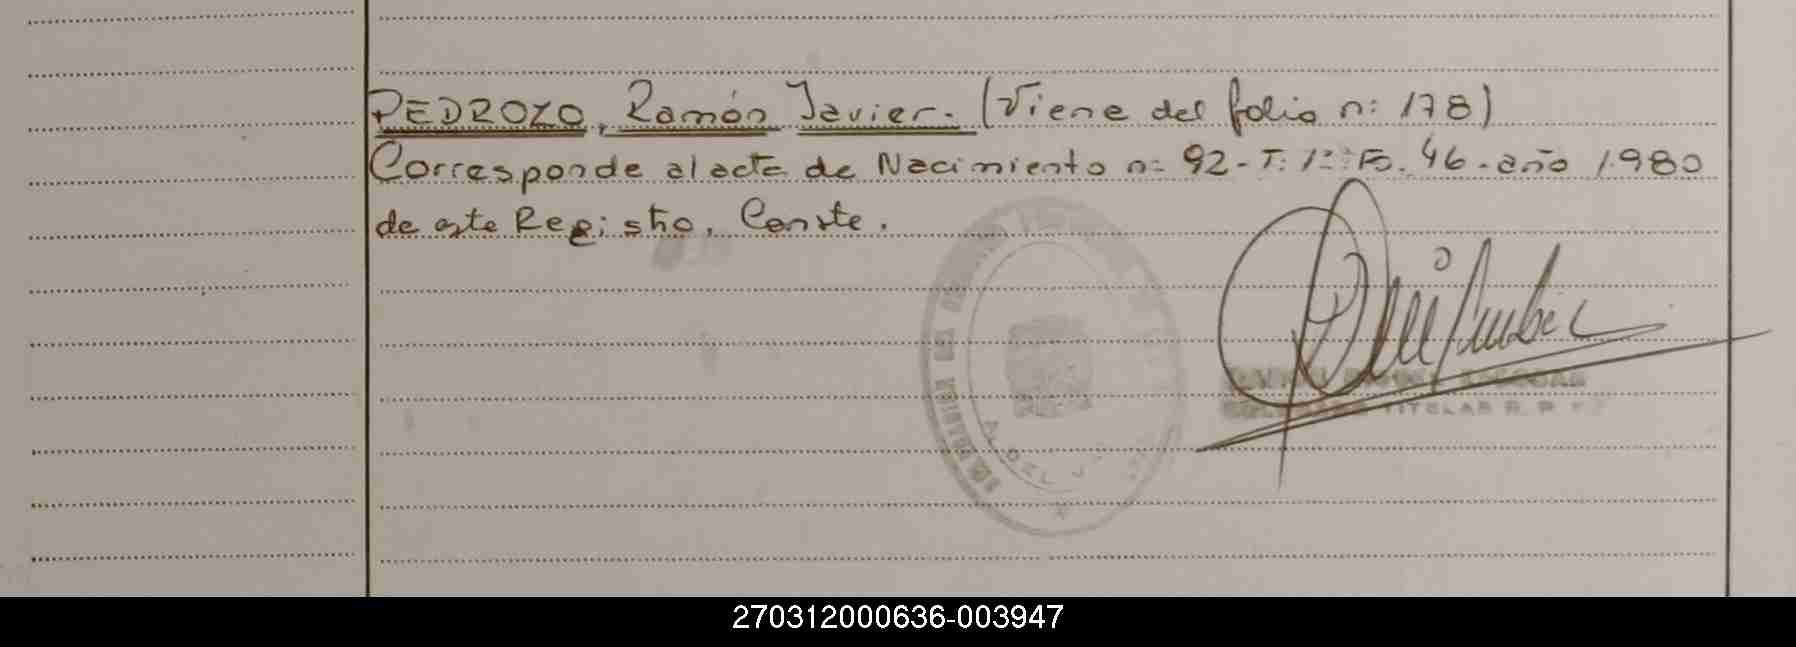 PEDROZO, Ramón Javier.- (Viene del folio n: 178)
Corresponde al acta de Nacimiento n= 92- T: 1º: Fº. 46- año 1980
de este Registro. Conste.
TITULAR R. P.
270312000636-003947